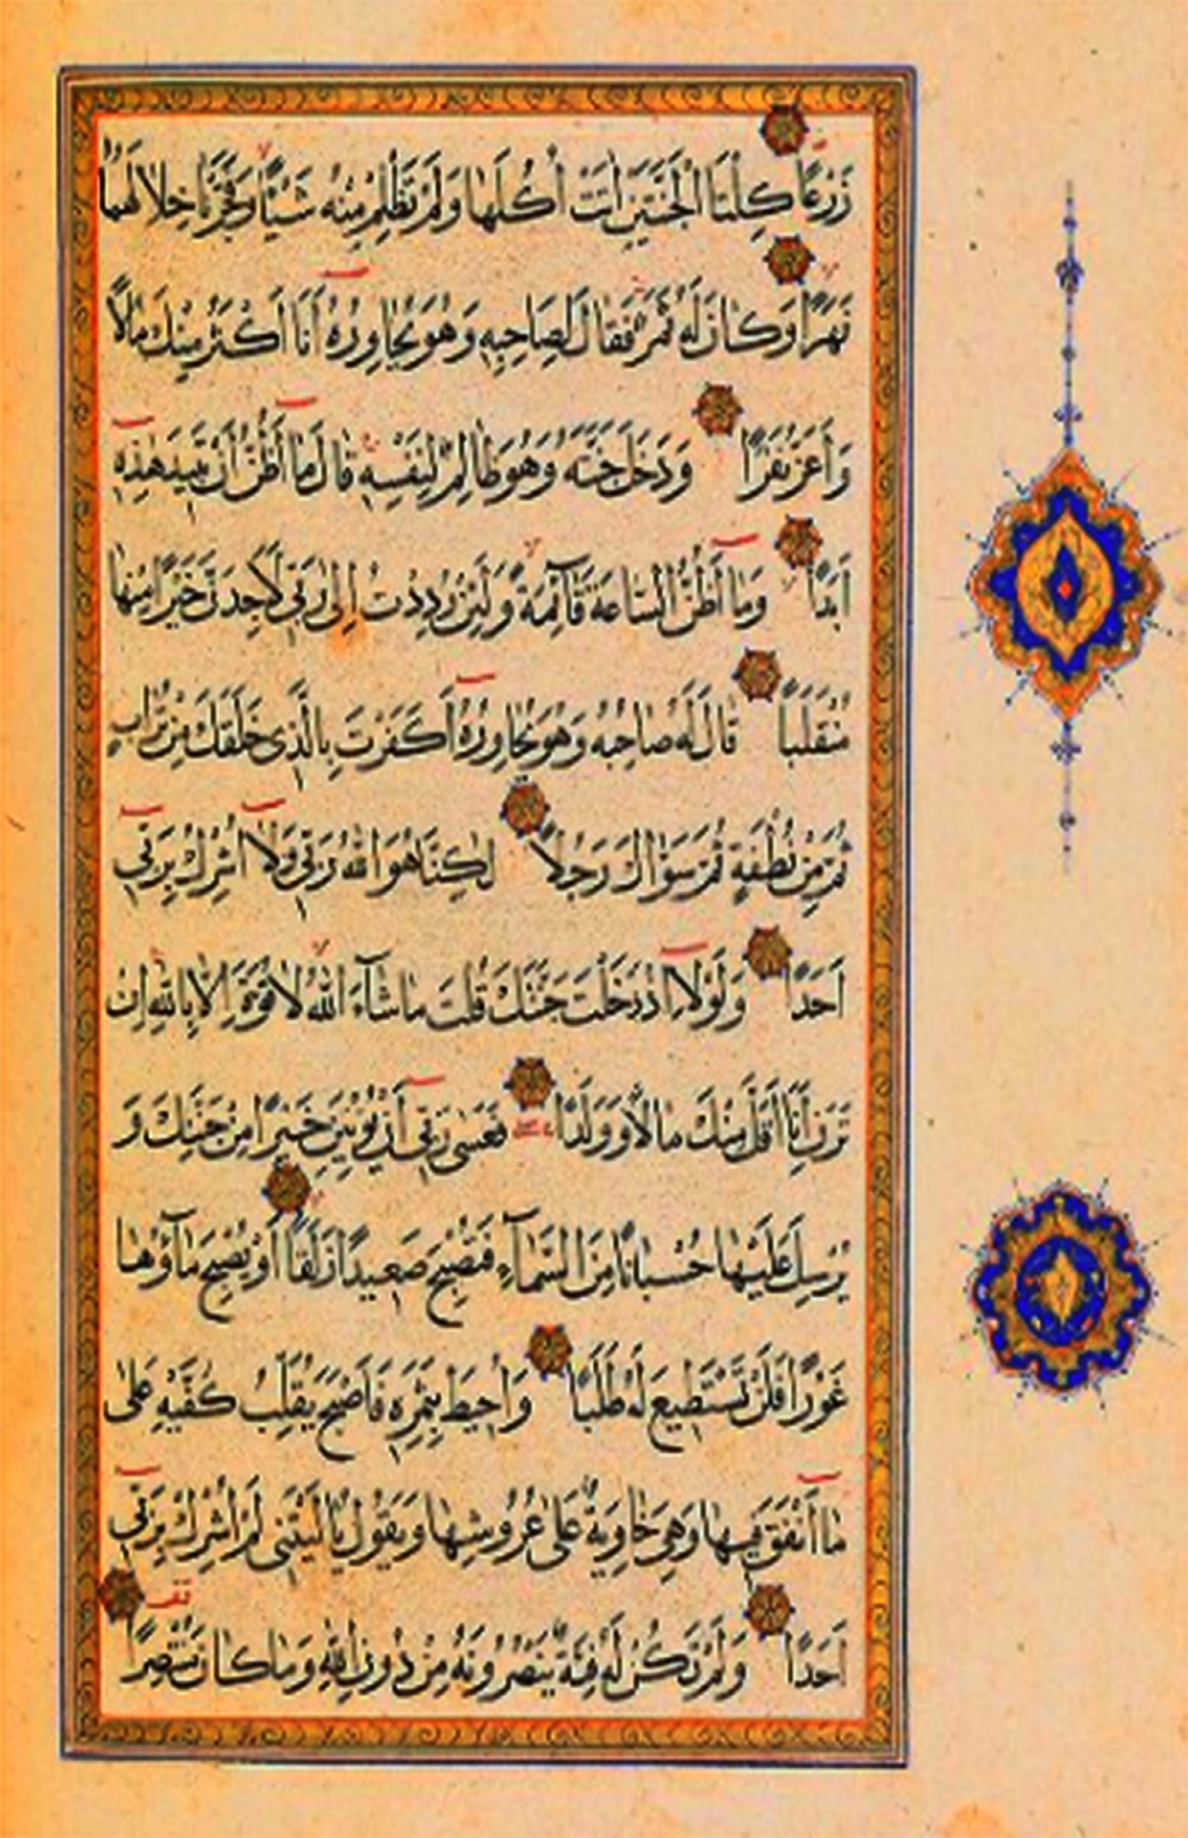 زَرْعًا كِلْتَا الْجَنَّتَيْنِ اٰتَتْ اُكُلَهَا وَلَمْ تَظْلِمْ مِنْهُ شَيْئًا وَفَجَّرْنَا خِلَالَهُمَا
نَهَرًا وَكَانَ لَهُ ثَمَرٌ فَقَالَ لِصَاحِبِهِ وَهُوَ يُحَاوِرُهُ أَنَا أَكْثَرُ مِنْكَ مَالًا
وَأَعَزُّ نَفَرًا وَدَخَلَ جَنَّتَهُ وَهُوَ ظَالِمٌ لِنَفْسِهِ قَالَ مَا أَظُنُّ أَنْ تَبِيدَ هٰذِهِ
اَبَدًا وَمَا أَظُنُّ السَّاعَةَ قَآئِمَةً وَلَئِنْ رُدِدْتُ اِلٰى رَبِّي لَاَجِدَنَّ خَيْرًا مِنْهَا
مُنْقَلَبًا قَالَ لَهُ صَاحِبُهُ وَهُوَ يُحَاوِرُهُ اَكَفَرْتَ بِالَّذِي خَلَقَكَ مِنْ تُرَابٍ
ثُمَّ مِنْ نُطْفَةٍ ثُمَّ سَوّٰىكَ رَجُلًا لٰكِنَّا هُوَ اللّٰهُ رَبِّي وَلَا اُشْرِكُ بِرَبِّي
اَحَدًا وَلَوْلَا اِذْ دَخَلْتَ جَنَّتَكَ قُلْتَ مَا شَآءَ اللّٰهُ لَا قُوَّةَ اِلَّا بِاللّٰهِ اِنْ
تَرَنِ اَنَا اَقَلَّ مِنْكَ مَالًا وَوَلَدًا فَعَسٰى رَبِّي أَنْ يُؤْتِيَنِ خَيْرًا مِنْ جَنَّتِكَ وَ
يُرْسِلَ عَلَيْهَا حُسْبَانًا مِنَ السَّمَآءِ فَتُصْبِحَ صَعِيدًا زَلَقًا اَوْ يُصْبِحَ مَآؤُهَا
غَوْرًا فَلَنْ تَسْتَطِيعَ لَهُ طَلَبًا وَاُحِيطَ بِثَمَرِهِ فَاَصْبَحَ يُقَلِّبُ كَفَّيْهِ عَلٰى
مَا اَنْفَقَ فِيهَا وَهِيَ خَاوِيَةٌ عَلٰى عُرُوشِهَا وَيَقُولُ يَا لَيْتَنِي لَمْ اُشْرِكْ بِرَبِّي
اَحَدًا وَلَمْ تَكُنْ لَهُ فِئَةٌ يَنْصُرُونَهُ مِنْ دُونِ اللّٰهِ وَمَا كَانَ مُنْتَصِرًا